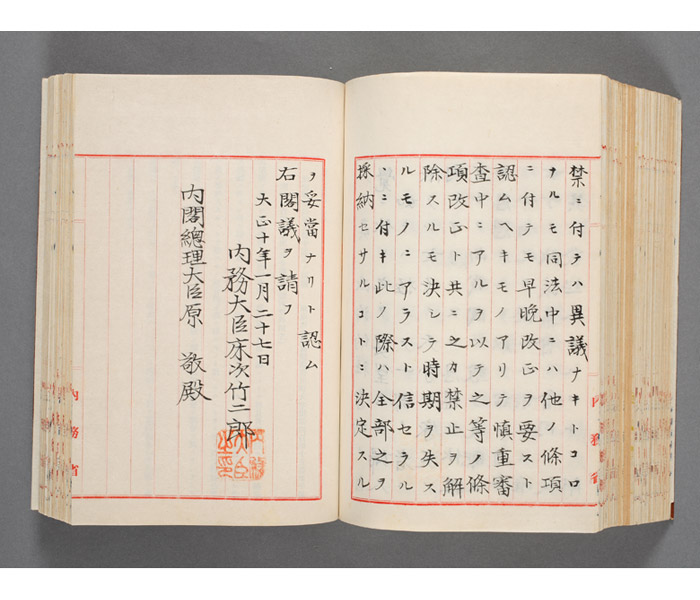 禁ニ付テハ異議ナキトコロ
ナルモ同法中ニハ他ノ條項
ニ付テモ早晩改正ヲ要スト
認ムヘキモノアリテ慎重審
査中ニアルヲ以テ之等ノ條
項改正ト共ニ之カ禁止ヲ解
除スルモ決シテ時期ヲ失ス
ルモノニアラスト信セラル
ヽニ付キ此ノ際ハ全部之ヲ
採納セサルコトニ決定スル
ヲ妥當ナリト認ム
右閣議ヲ請フ
大正十年一月二十七日
内務大臣床次竹二郎
内務大臣之印
内閣總理大臣原 敬殿
内務省
内務省